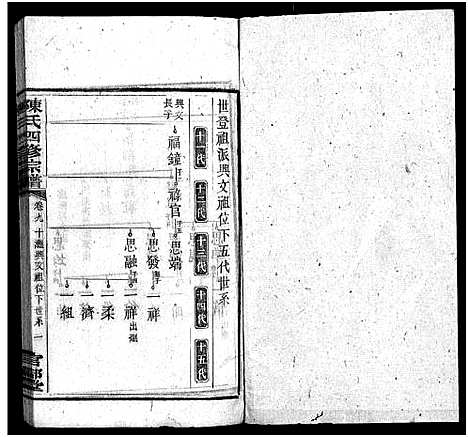 世登祖派興文祖位下五代世系
十一代
十二代
十三代
十四代
十五代
興文長子
福鐘
祿官
思端
思發
一祥
思融
一祥出繼
一柔
一濟
一組
陳氏四修宗譜
卷九
十灣興文祖位下世系
一